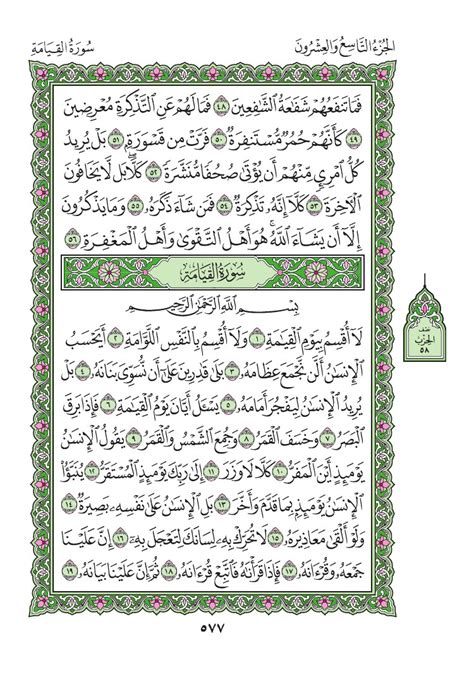 الجُزْءُ التَّاسِعُ وَالعِشْرُونَ
سُورَةُ القِيَامَةِ
فَمَا تَنفَعُهُمْ شَفَٰعَةُ ٱلشَّٰفِعِينَ ٤٨ فَمَا لَهُمْ عَنِ ٱلتَّذْكِرَةِ مُعْرِضِينَ
٤٩ كَأَنَّهُمْ حُمُرٌ مُّسْتَنفِرَةٌ ٥٠ فَرَّتْ مِن قَسْوَرَةٍ ٥١ بَلْ يُرِيدُ
كُلُّ ٱمْرِئٍ مِّنْهُمْ أَن يُؤْتَىٰ صُحُفًا مُّنَشَّرَةً ٥٢ كَلَّا بَل لَّا يَخَافُونَ
ٱلْآخِرَةَ ٥٣ كَلَّا إِنَّهُۥ تَذْكِرَةٌ ٥٤ فَمَن شَآءَ ذَكَرَهُۥ ٥٥ وَمَا يَذْكُرُونَ
إِلَّا أَن يَشَآءَ ٱللَّهُ ۚ هُوَ أَهْلُ ٱلتَّقْوَىٰ وَأَهْلُ ٱلْمَغْفِرَةِ ٥٦
سُورَةُ القِيَامَةِ
بِسْمِ ٱللَّهِ ٱلرَّحْمَٰنِ ٱلرَّحِيمِ
لَآ أُقْسِمُ بِيَوْمِ ٱلْقِيَٰمَةِ ١ وَلَآ أُقْسِمُ بِٱلنَّفْسِ ٱللَّوَّامَةِ ٢ أَيَحْسَبُ
ٱلْإِنسَٰنُ أَلَّن نَّجْمَعَ عِظَامَهُۥ ٣ بَلَىٰ قَٰدِرِينَ عَلَىٰٓ أَن نُّسَوِّىَ بَنَانَهُۥ ٤ بَلْ
يُرِيدُ ٱلْإِنسَٰنُ لِيَفْجُرَ أَمَامَهُۥ ٥ يَسْـَٔلُ أَيَّانَ يَوْمُ ٱلْقِيَٰمَةِ ٦ فَإِذَا بَرِقَ
ٱلْبَصَرُ ٧ وَخَسَفَ ٱلْقَمَرُ ٨ وَجُمِعَ ٱلشَّمْسُ وَٱلْقَمَرُ ٩ يَقُولُ ٱلْإِنسَٰنُ
يَوْمَئِذٍ أَيْنَ ٱلْمَفَرُّ ١٠ كَلَّا لَا وَزَرَ ١١ إِلَىٰ رَبِّكَ يَوْمَئِذٍ ٱلْمُسْتَقَرُّ ١٢ يُنَبَّؤُا۟
ٱلْإِنسَٰنُ يَوْمَئِذٍۭ بِمَا قَدَّمَ وَأَخَّرَ ١٣ بَلِ ٱلْإِنسَٰنُ عَلَىٰ نَفْسِهِۦ بَصِيرَةٌ ١٤
وَلَوْ أَلْقَىٰ مَعَاذِيرَهُۥ ١٥ لَا تُحَرِّكْ بِهِۦ لِسَانَكَ لِتَعْجَلَ بِهِۦٓ ١٦ إِنَّ عَلَيْنَا
جَمْعَهُۥ وَقُرْءَانَهُۥ ١٧ فَإِذَا قَرَأْنَٰهُ فَٱتَّبِعْ قُرْءَانَهُۥ ١٨ ثُمَّ إِنَّ عَلَيْنَا بَيَانَهُۥ ١٩
نصف
الحزب
٥٨
٥٧٧